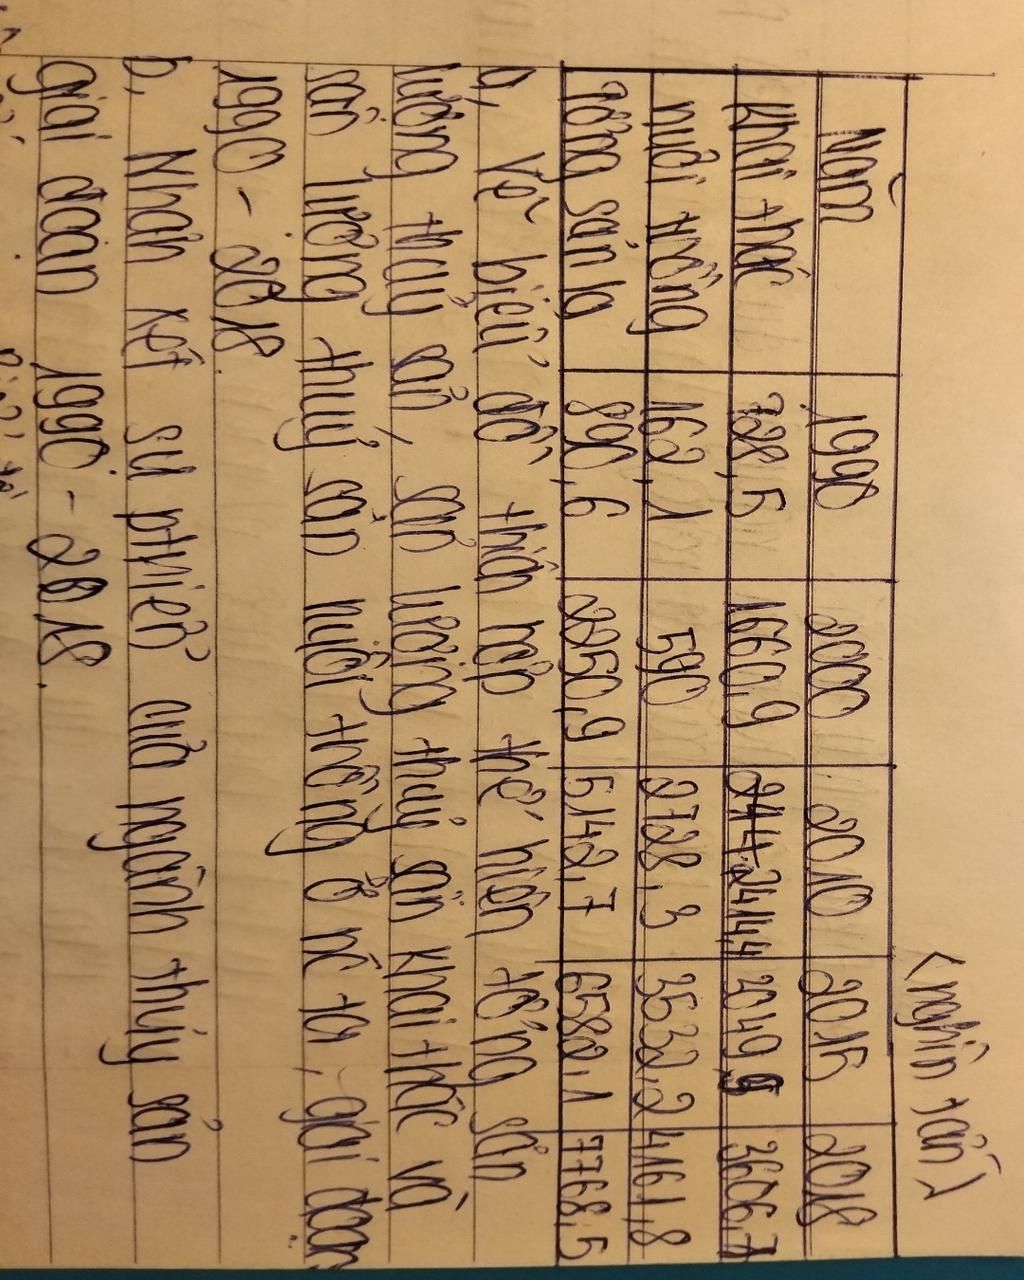 <nghìn tấn>
Năm 1990 2000 2010 2015 2018
Khai thác 728,5 1660,9 2414,4 2049,9 3606,7
nuôi trồng 162,1 590 2728,3 3532,2 4161,8
Tổng sản lg 890,6 2250,9 5142,7 6582,1 7768,5
a, Vẽ biểu đồ thích hợp thể hiện tổng sản
lượng thuỷ sản, sản lượng thuỷ sản khai thác và
sản lượng thuỷ sản nuôi trồng ở nc ta, giai đoạn
1990 - 2018.
b, Nhận xét sự pthiển của ngành thủy sản
giai đoạn 1990 - 2018.